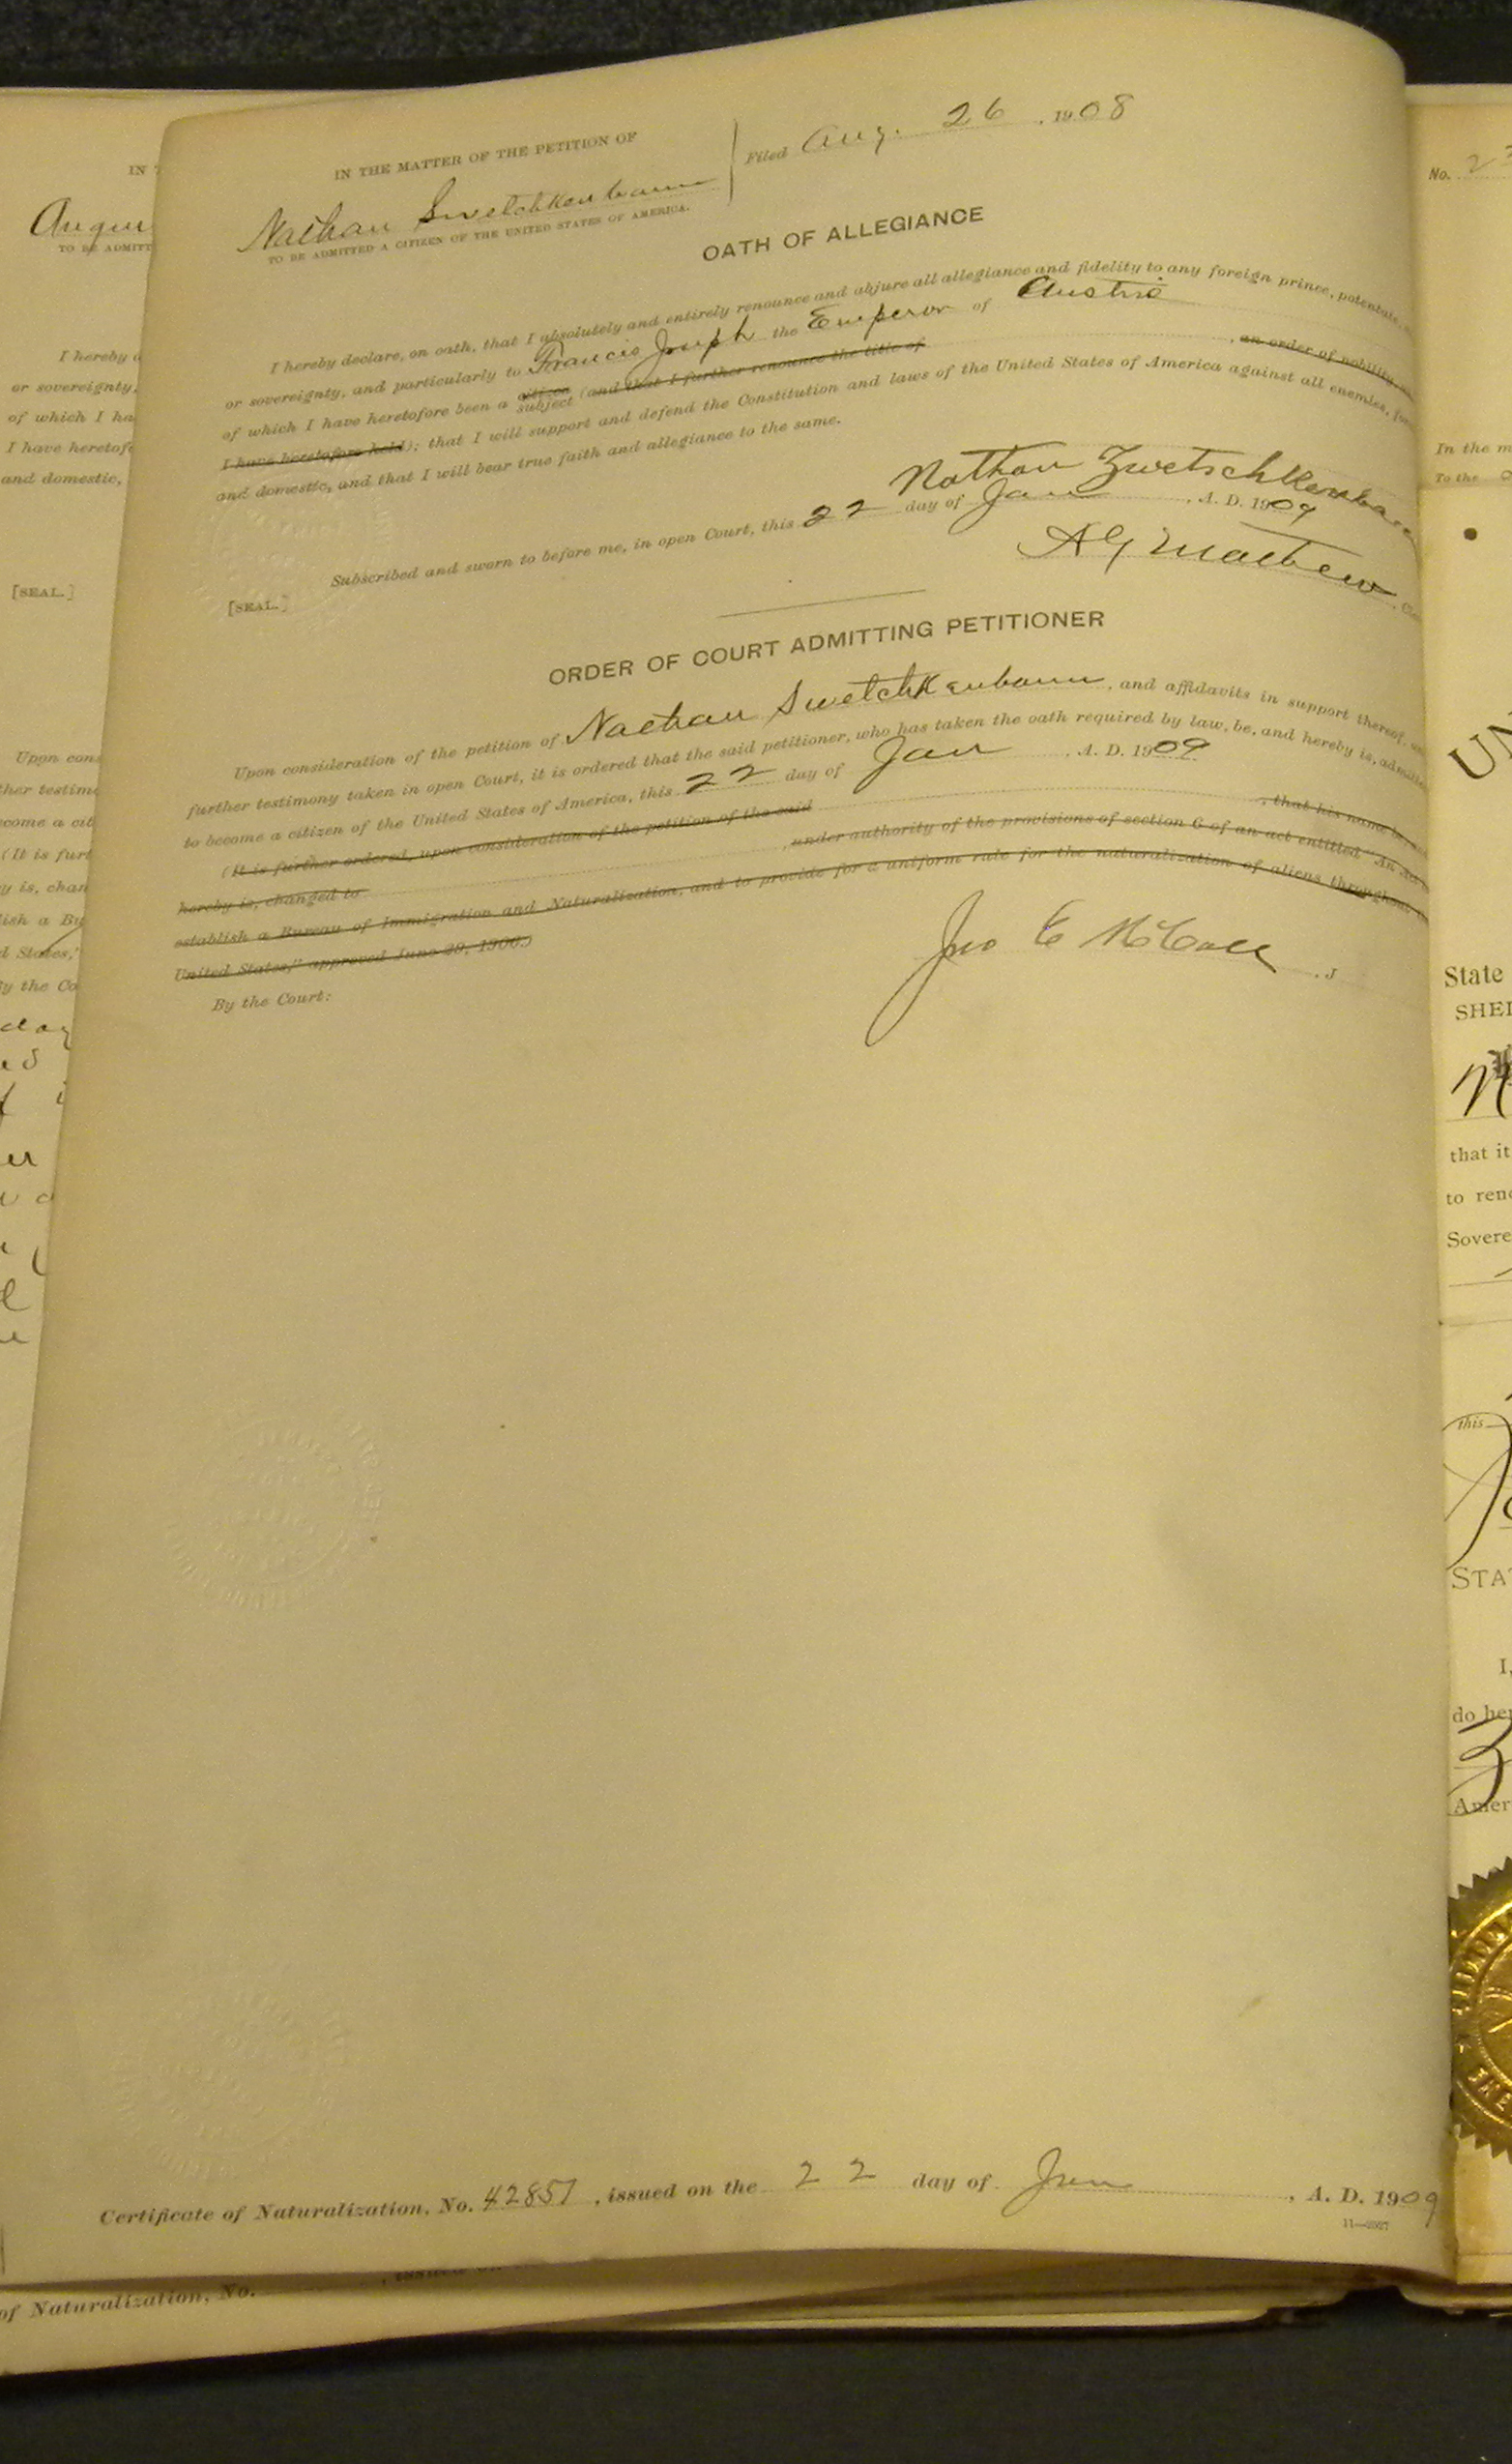 IN THE MATTER OF THE PETITION OF
Nathan Swetchkenbaum
TO BE ADMITTED A CITIZEN OF THE UNITED STATES OF AMERICA.
Filed Aug. 26, 1908
OATH OF ALLEGIANCE
I hereby declare, on oath, that I absolutely and entirely renounce and abjure all allegiance and fidelity to any foreign prince, potentate,
or sovereignty, and particularly to Francis Joseph the Emperor of Austria
of which I have heretofore been a citizen subject (and that I further renounce the title of , an order of nobility,
I have heretofore held); that I will support and defend the Constitution and laws of the United States of America against all enemies,
and domestic, and that I will bear true faith and allegiance to the same.
Nathan Zwetschkenba
Subscribed and sworn to before me, in open Court, this 22 day of Jan , A. D. 1909
[SEAL.]
A G Mathews
ORDER OF COURT ADMITTING PETITIONER
Upon consideration of the petition of Nathan Swetchkenbaum, and affidavits in support thereof,
further testimony taken in open Court, it is ordered that the said petitioner, who has taken the oath required by law, be, and hereby is, admitted
to become a citizen of the United States of America, this 22 day of Jan , A. D. 1909
(It is further ordered, upon consideration of the petition of the said , that his name be,
hereby is, changed to , under authority of the provisions of section 6 of an act entitled "An Act
establish a Bureau of Immigration and Naturalization, and to provide for a uniform rule for the naturalization of aliens throughout
United States," approved June 29, 1906.)
By the Court:
Jno E McCall , J
Certificate of Naturalization, No. 42851, issued on the 22 day of Jan , A. D. 1909
Augu
TO BE ADMITT
I hereby
or sovereignty,
of which I ha
I have heretofo
and domestic,
[SEAL.]
Upon con
ther testim
come a cit
(It is furt
y is, chan
lish a Bu
d States,"
By the Co
of Naturalization, No.
No. 23
In the m
To the
UN
State
SHEL
that it
to ren
Sovere
this
STA
I,
do her
Amer